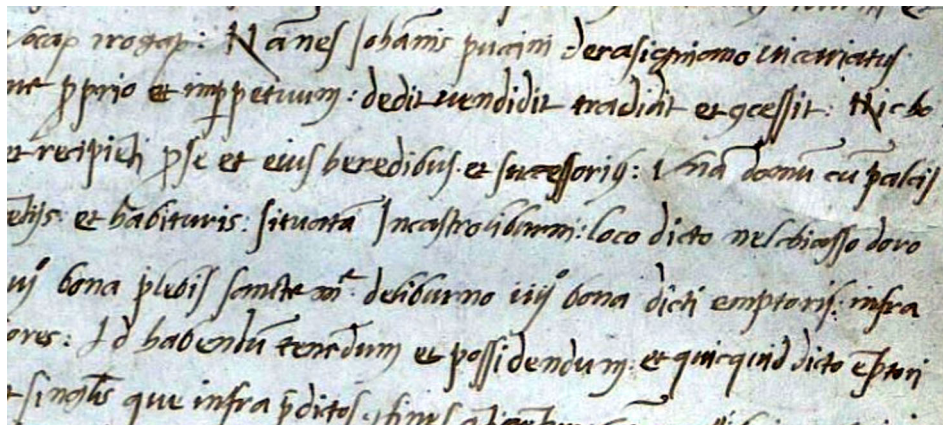 vocap rogap: Nanes Johanis puccini de rasignano vicariatus
pprio et imppetuum: dedit vendidit tradidit et gcessit: Nicho
et recipieti pse et eius heredibus et successoriƺ: Una domu cu palcis
et habituris: situata In castro liburni: loco dicto nel chiasso doro
bona plebis sancte deliburno iiij° bona dicti emptoris: infra
ores: Ad habendu tenedum et possidendum et quicquid dicto eptori
singlis que infra pditos fines